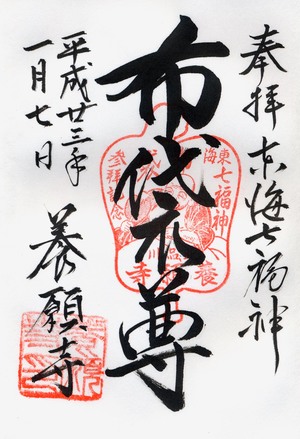 奉拝 东海七福神
布袋尊
平成廿三年
一月七日
養願寺
東海七福神
参拝記念
品川
養願寺